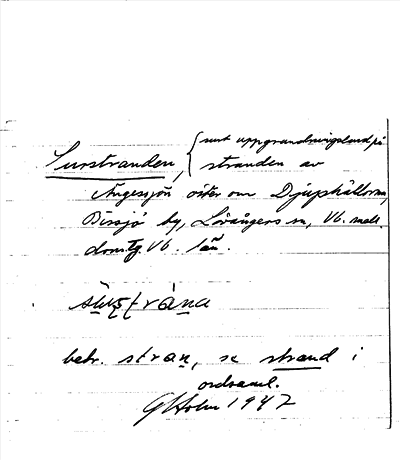 Surstranden, { surt uppgrundningsland på
stranden av
Ångessjön öster om Djuphällorna,
Bissjö by, Lövångers sn, Vb. mell.
domsg. Vb. län.
betr. stran, se strand i
ordsaml.
G Holm 1947